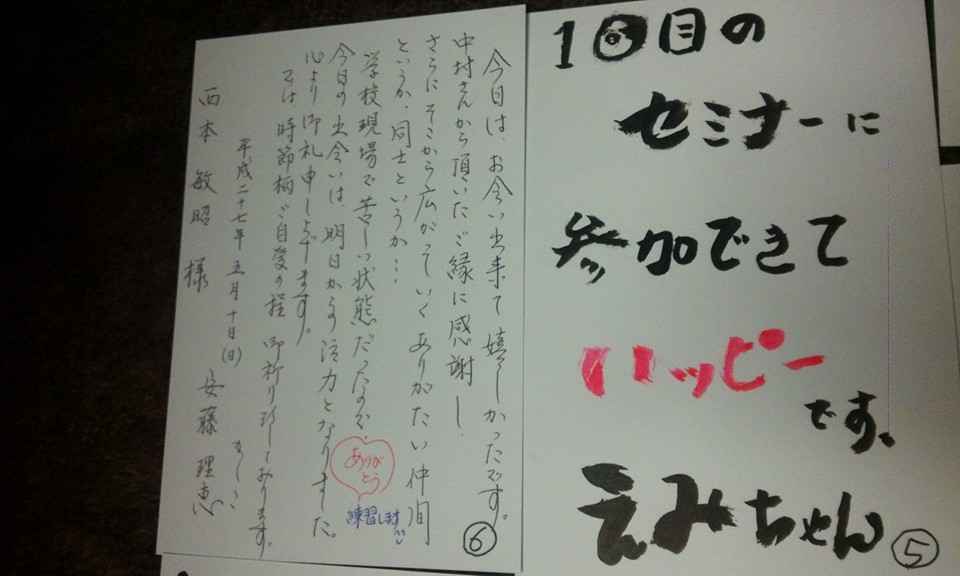 今日は、お会い出来て嬉しかったです。
中村さんから頂いたご縁に感謝し、
さらにそこから広がっていくありがたい仲間
というか、同士というか…
学校現場で苦しい状態だったので、
今日の出会いは、明日からの活力となりました。
心より御礼申し上げます。
では時節柄ご自愛の程 御祈り致しております。
平成二十七年 五月十日(日)
安藤 理恵
西本 敏昭 様
ありが
とう
練習します
⑥
10回目の
セミナーに
参加できて
ハッピー
です、
えみちゃん
⑤